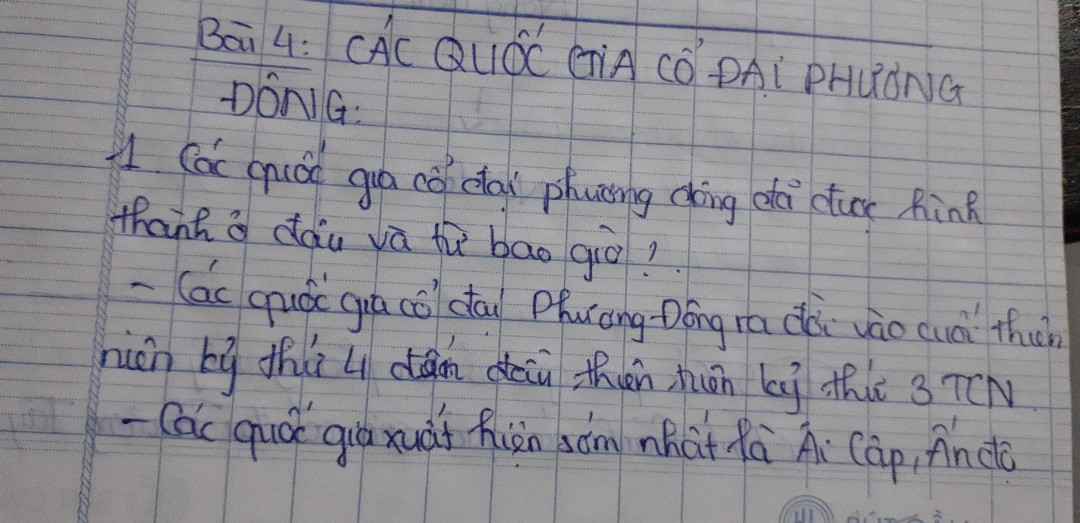 Bài 4: CÁC QUỐC GIA CỔ ĐẠI PHƯƠNG
ĐÔNG:
1 Các quốc gia cổ đại phương đông đã được hình
thành ở đâu và từ bao giờ?
- Các quốc gia cổ đại Phương Đông ra đời vào cuối thiên
niên kỷ thứ 4 đến đầu thiên niên kỷ thứ 3 TCN
- Các quốc gia xuất hiện sớm nhất là Ai Cập, Ấn độ